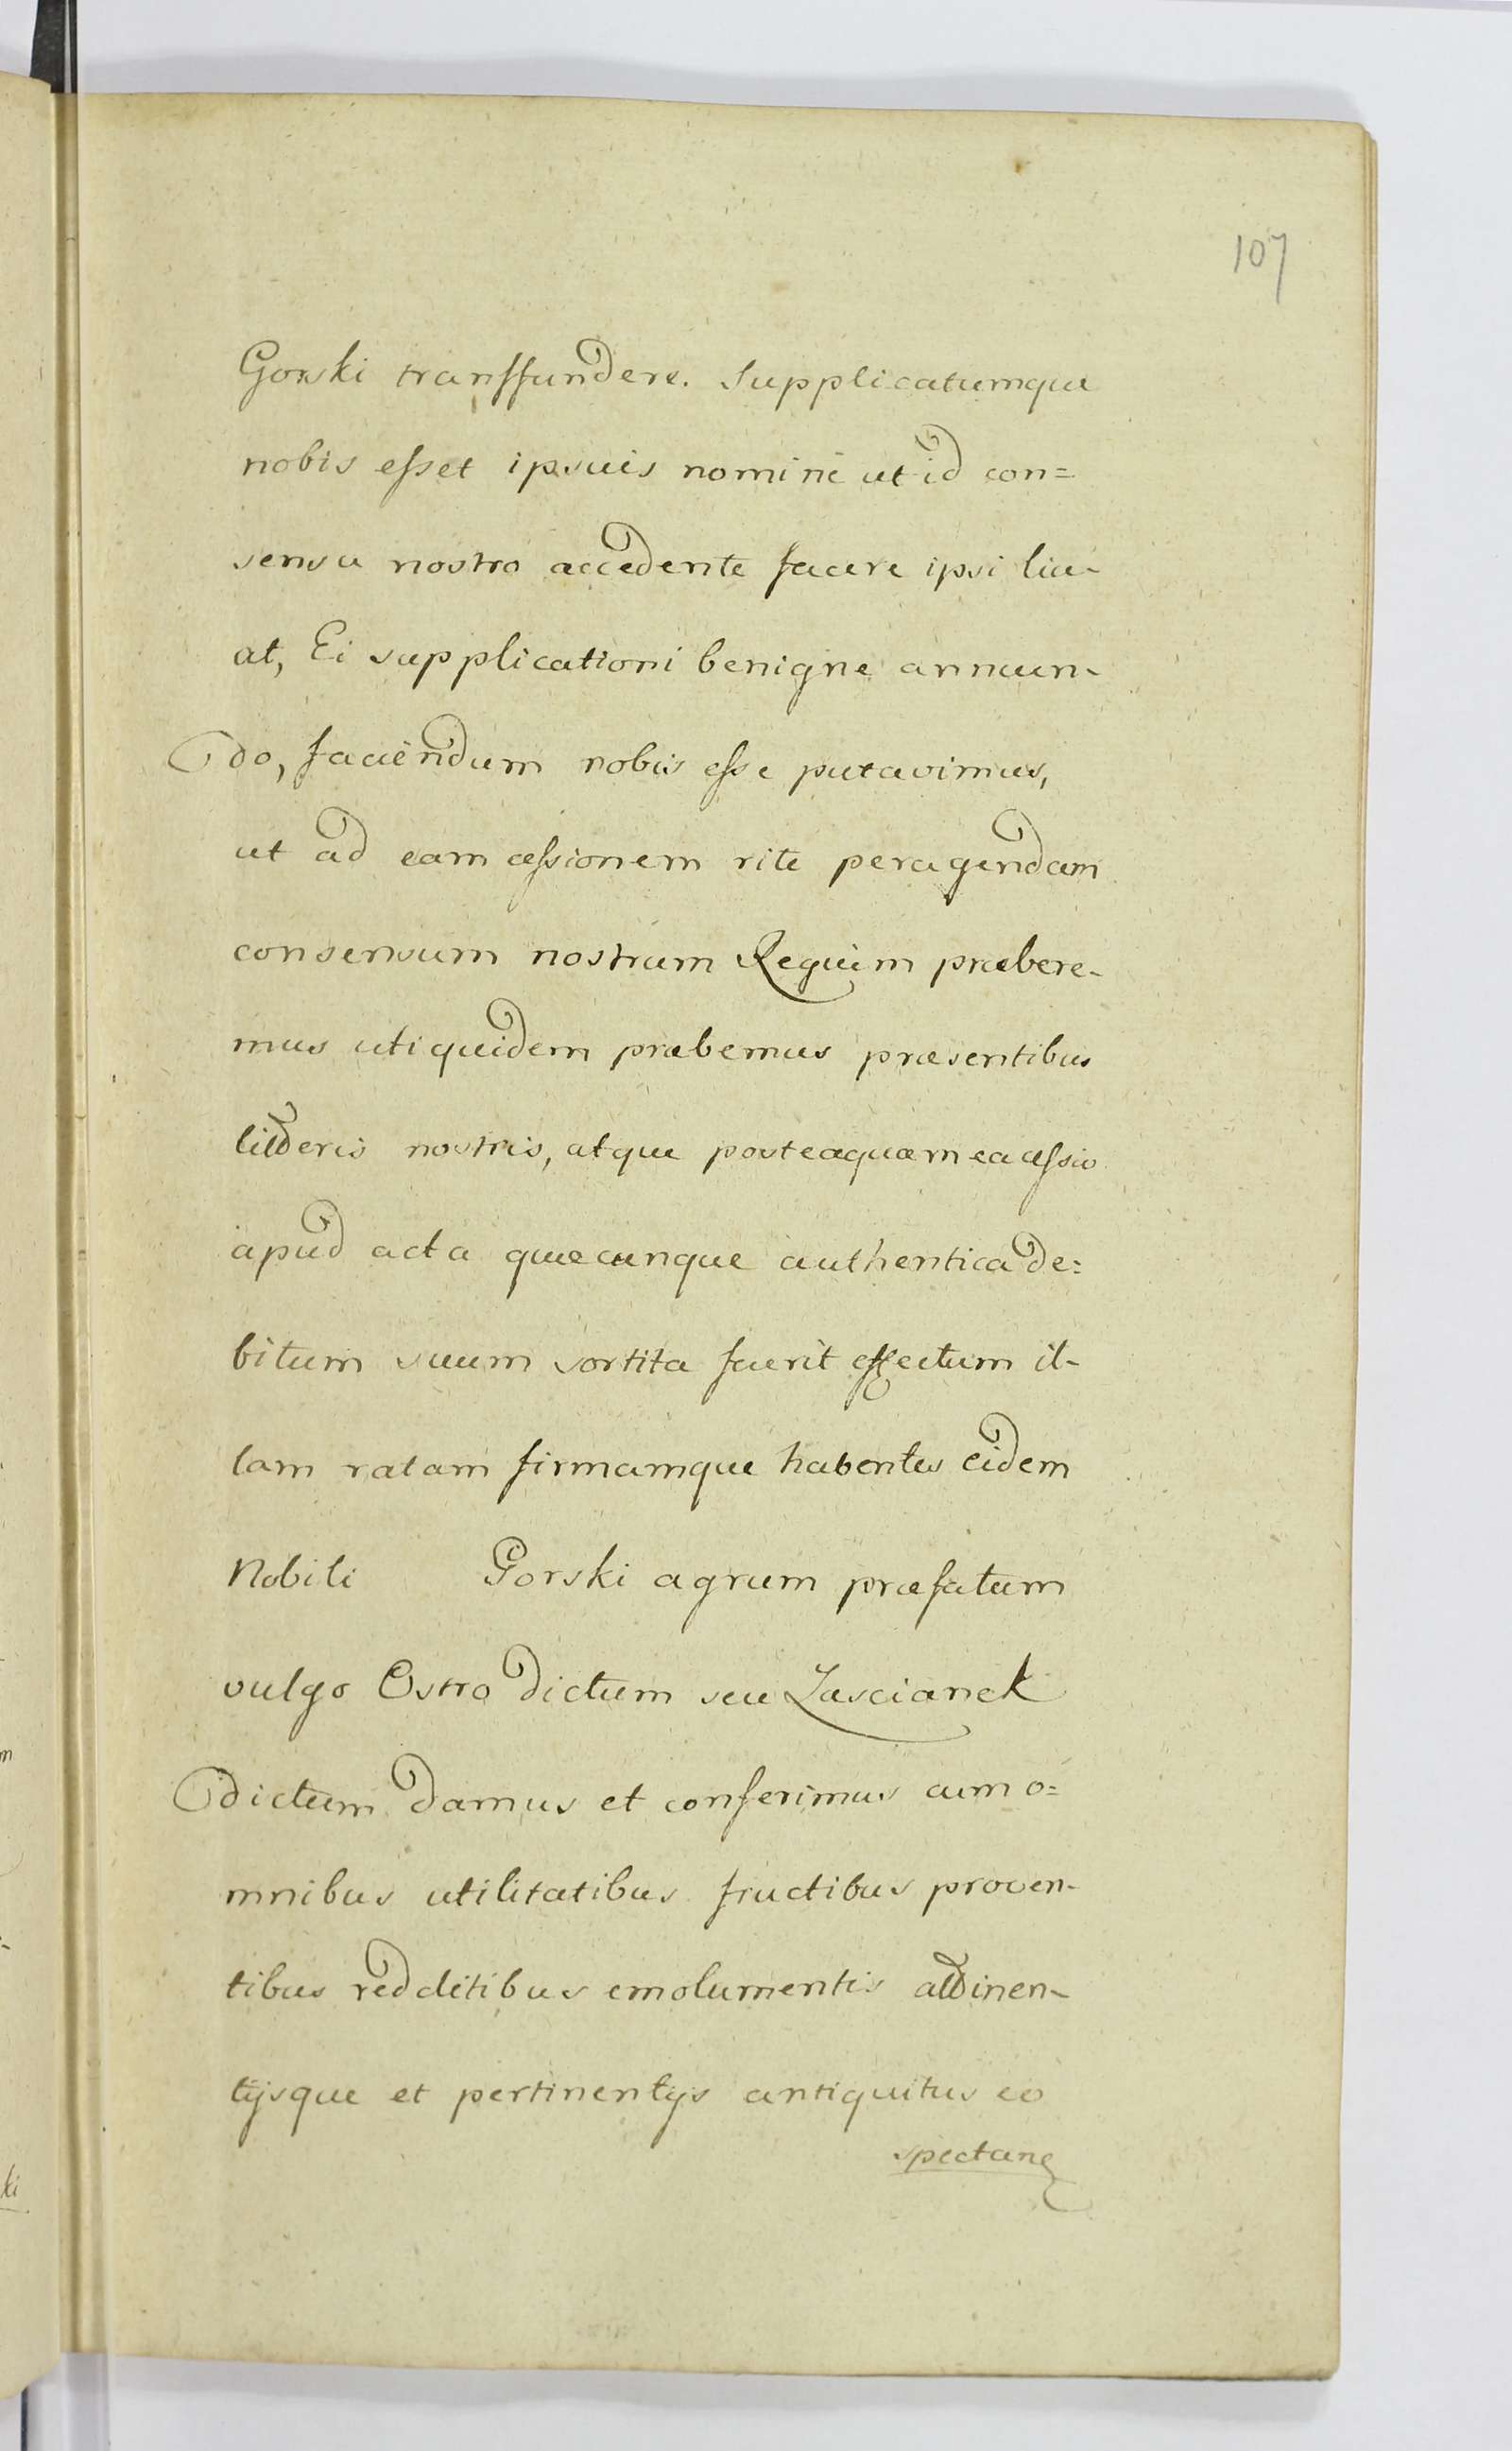 107
Gorski transfundere. Supplicatumque
nobis esset ipsius nomine ut id con=
sensu nostro accedente facere ipsi lice-
at, Ei supplicationi benigne annuen-
do, faciendum nobis esse putavimus,
ut ad eam cessionem rite peragendam
consensum nostrum Regium præbere-
mus uti quidem præbemus præsentibus
litteris nostris, atque posteaquam ea cessio
apud acta quæcunque authentica de=
bitum suum sortita fuerit effectum il-
lam ratam firmamque habentes eidem
Nobili Gorski agrum præfatum
vulgo Ostro dictum seu Zascianek
dictum damus et conferimus cum o=
mnibus utilitatibus fructibus proven-
tibus redditibus emolumentis attinen-
tijsque et pertinentijs antiquitus eo
spectan